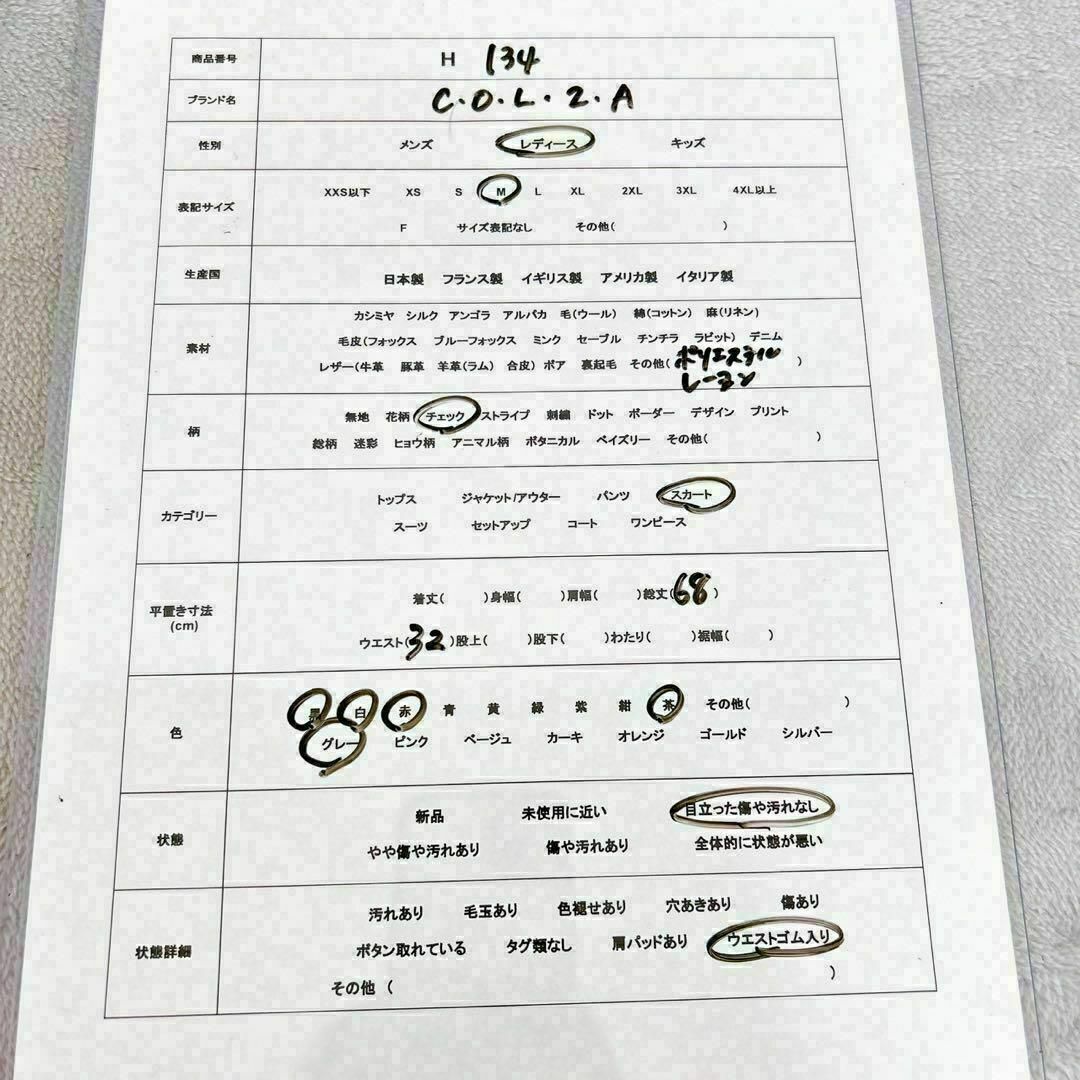 商品番号 H 134
ブランド名 C.O.L.2.A
性別 メンズ レディース キッズ
表記サイズ XXS以下 XS S M L XL 2XL 3XL 4XL以上
F サイズ表記なし その他( )
生産国 日本製 フランス製 イギリス製 アメリカ製 イタリア製
素材 カシミヤ シルク アンゴラ アルパカ 毛(ウール) 綿(コットン) 麻(リネン)
毛皮(フォックス ブルーフォックス ミンク セーブル チンチラ ラビット) デニム
レザー(牛革 豚革 羊革(ラム) 合皮) ボア 裏起毛 その他(ポリエステル
レーヨン )
柄 無地 花柄 チェック ストライプ 刺繍 ドット ボーダー デザイン プリント
総柄 迷彩 ヒョウ柄 アニマル柄 ボタニカル ペイズリー その他( )
カテゴリー トップス ジャケット/アウター パンツ スカート
スーツ セットアップ コート ワンピース
平置き寸法 着丈( )身幅( )肩幅( )総丈(68)
(cm) ウエスト(32)股上( )股下( )わたり( )裾幅( )
色 黒 白 赤 青 黄 緑 紫 紺 茶 その他( )
グレー ピンク ベージュ カーキ オレンジ ゴールド シルバー
状態 新品 未使用に近い 目立った傷や汚れなし
やや傷や汚れあり 傷や汚れあり 全体的に状態が悪い
状態詳細 汚れあり 毛玉あり 色褪せあり 穴あきあり 傷あり
ボタン取れている タグ類なし 肩パッドあり ウエストゴム入り
その他 ( )